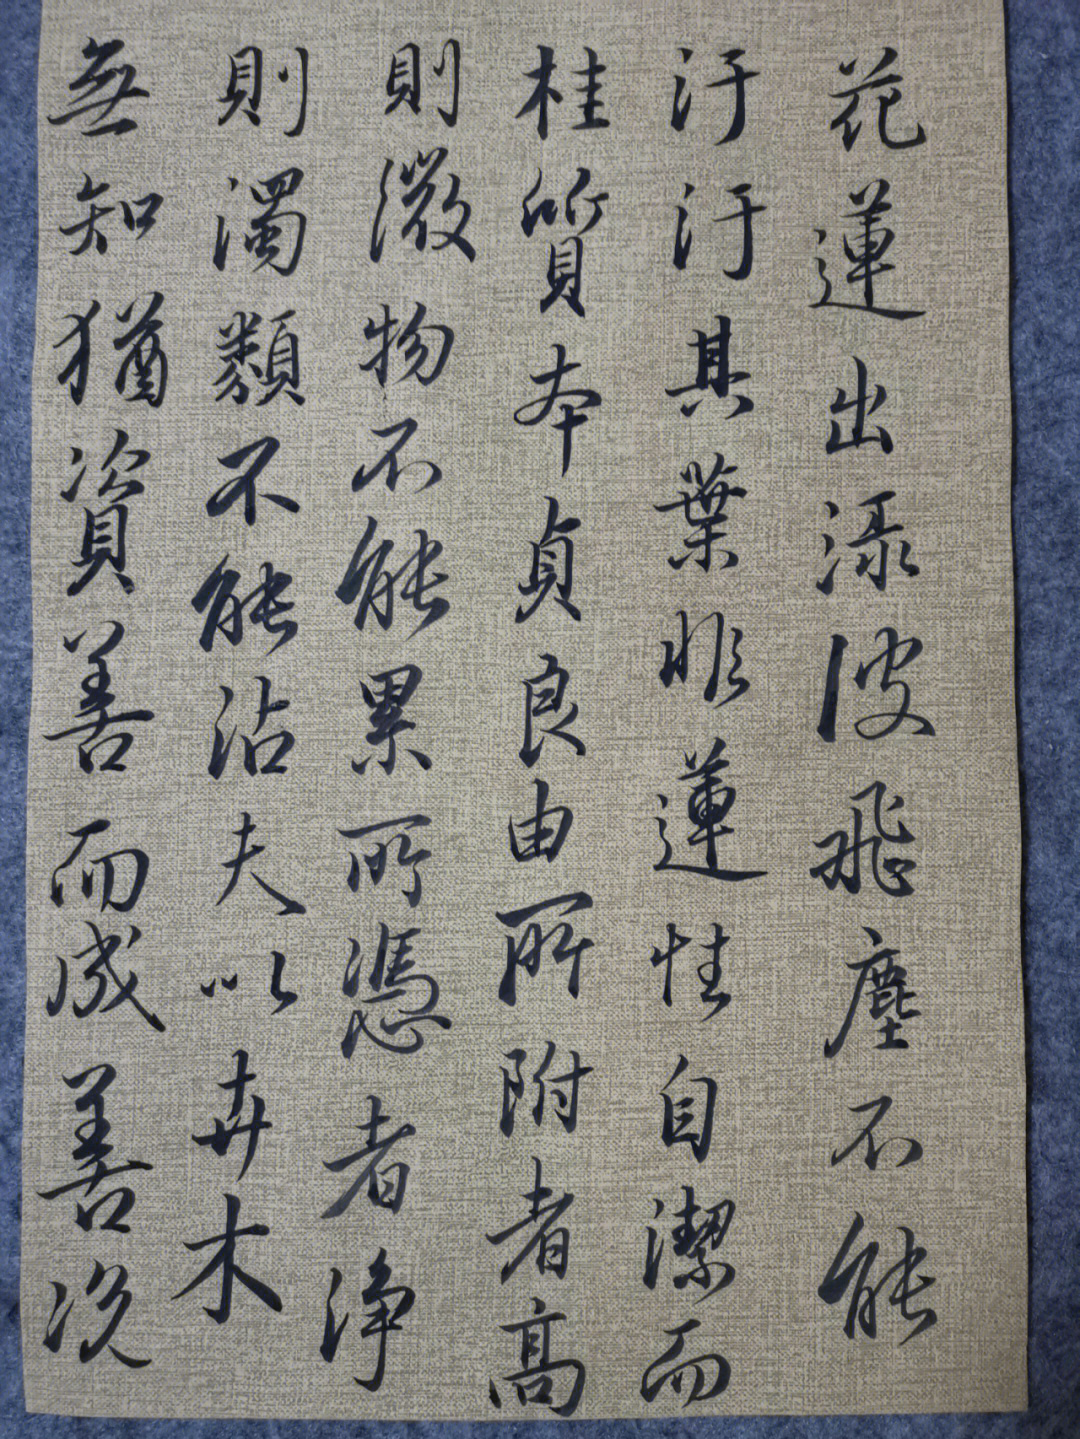 花蓮出渌波飛塵不能
汙汙其葉非蓮性自潔而
桂質本貞良由所附者高
則微物不能累所憑者浄
則濁類不能沾夫以卉木
無知猶資善而成善况